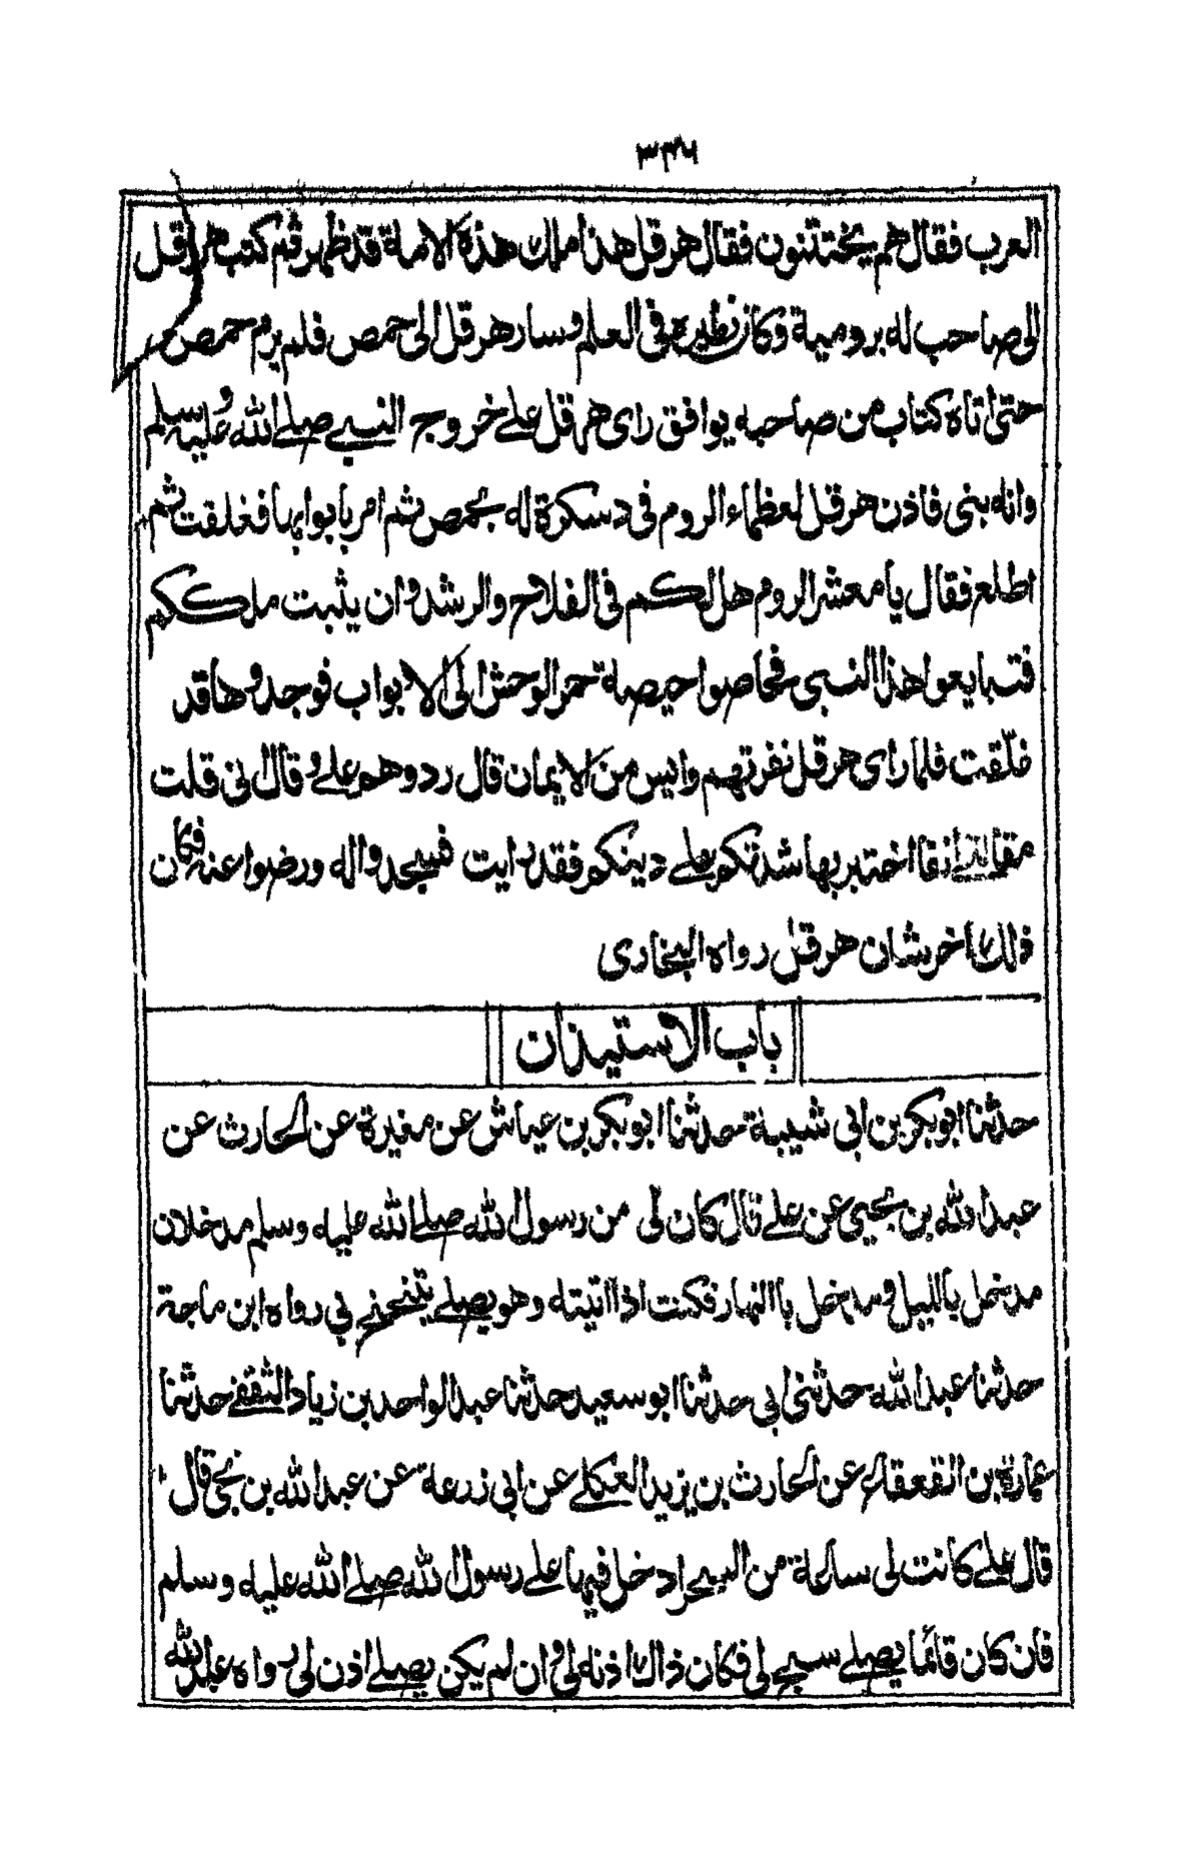 ٣٣٦
العرب فقال هم يختتنون فقال هرقل هذا ملك هذه الامة قد ظهر ثم كتب هرقل
الى صاحب له برومية وكان نظيره فى العلم وسار هرقل الى حمص فلم يرم حمص
حتى اتاه كتاب من صاحبه يوافق راى هرقل على خروج النبي صلى الله عليه وسلم
وانه نبى فاذن هرقل لعظماء الروم فى دسكرة له بحمص ثم امر بابوابها فغلقت ثم
اطلع فقال يا معشر الروم هل لكم فى الفلاح والرشد وان يثبت ملككم
فتبايعوا هذا النبى فحاصوا حيصة حمر الوحش الى الابواب فوجدوها قد
غلقت فلما راى هرقل نفرتهم وايس من الايمان قال ردوهم على وقال انى قلت
مقالتى انفا اختبر بها شدتكم على دينكم فقد رايت فسجدوا له ورضوا عنه فكان
ذلك اخر شان هرقل رواه البخارى
باب الاستيذان
حدثنا ابو بكر بن ابى شيبة حدثنا ابو بكر بن عياش عن مغيرة عن الحارث عن
عبد الله بن يحيى عن على قال كان لى من رسول الله صلى الله عليه وسلم مدخلان
مدخل بالليل ومدخل بالنهار فكنت اذا اتيته وهو يصلى يتنحنح لي رواه ابن ماجة
حدثنا عبد الله حدثنى ابي حدثنا ابو سعيد حدثنا عبد الواحد بن زياد الثقفى حدثنا
عمارة بن القعقاع عن الحارث بن يزيد العكلى عن ابى زرعة عن عبد الله بن نجى قال
قال على كانت لى ساعة من السحر ادخل فيها على رسول الله صلى الله عليه وسلم
فان كان قائما يصلى سبح لى فكان ذاك اذنه لى وان لم يكن يصلى اذن لى رواه عبد الله